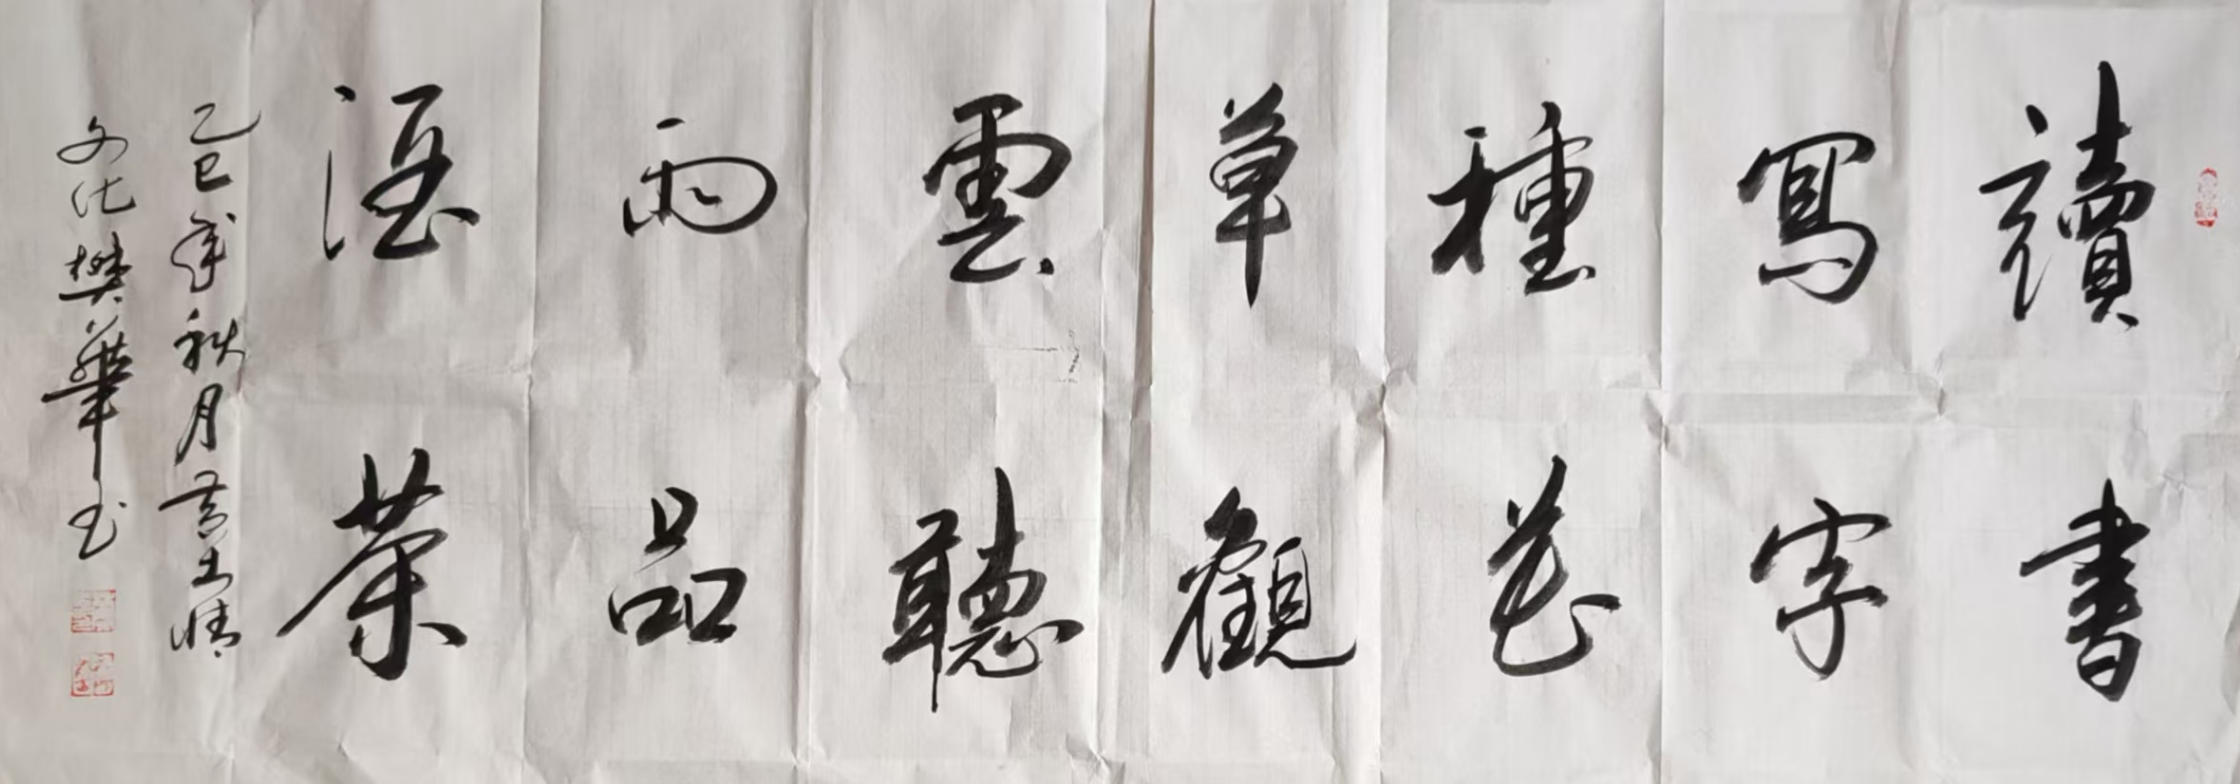 讀書
寫字
種花
草觀
雲聽
雨品
酒茶
乙巳年秋月黄土情
文化樊華书